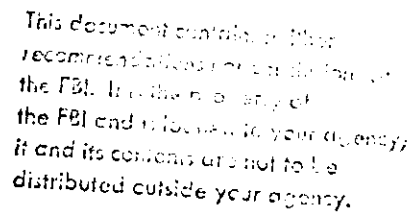 This document contains
recommendations
the FBI. It is the property of
the FBI and is loaned to your agency;
it and its contents are not to be
distributed outside your agency.